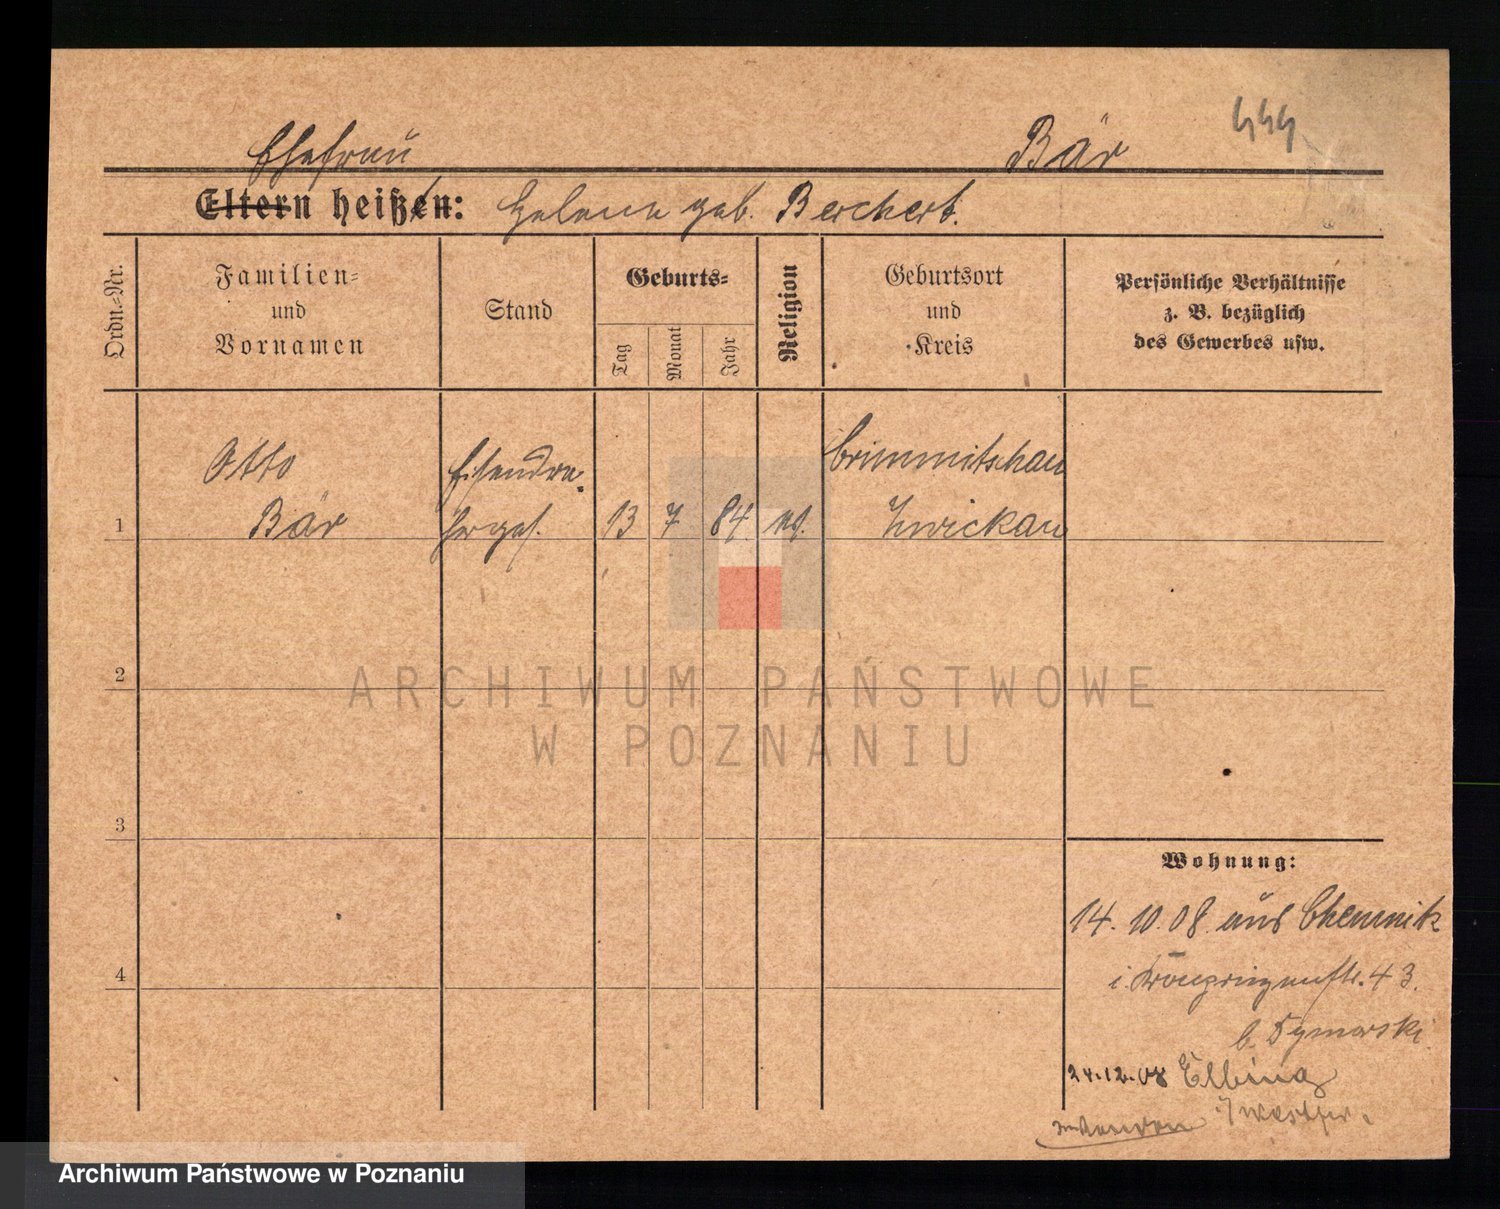 444
Ehefrau Bär
Eltern heißen: Helene geb. Berchert.
Ordn.-Nr.
Familien-
und
Vornamen
Stand
Geburts-
Tag
Monat
Jahr
Religion
Geburtsort
und
Kreis
Persönliche Verhältnisse
z. B. bezüglich
des Gewerbes usw.
1
Otto
Bär
Eisendre-
herges.
13
7
84.
ev.
Crimmitschau
Zwickau
2
3
4
Wohnung:
14. 10. 08. aus Chemnitz
i. Kronprinzenstr. 43.
b. Dymarski
24.12.08 Elbing
i/ Westpr.
ARCHIWUM PAŃSTWOWE
W POZNANIU
Archiwum Państwowe w Poznaniu